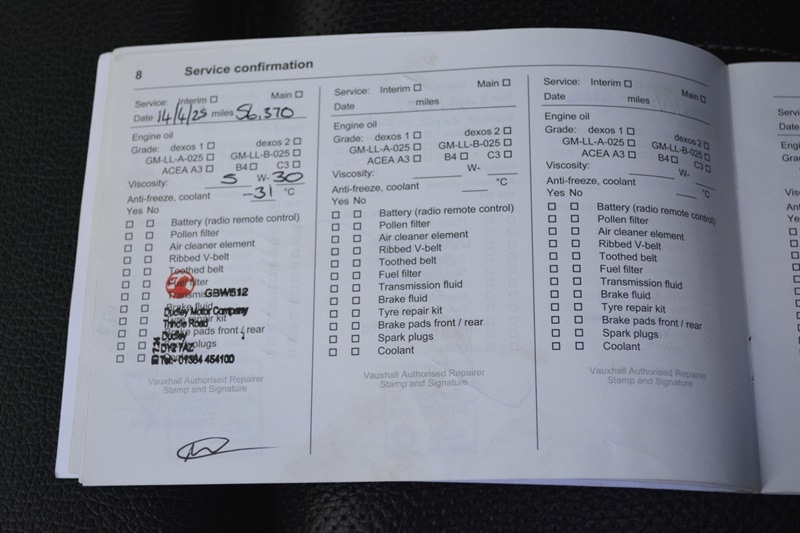 8 Service confirmation
Service: Interim ☐ Main ☐
Date 14/4/25 miles 56,370
Engine oil
Grade: dexos 1 ☐ dexos 2 ☐
GM-LL-A-025 ☐ GM-LL-B-025 ☐
ACEA A3 ☐ B4 ☐ C3 ☐
Viscosity: 5 W- 30
Anti-freeze, coolant -31 °C
Yes No
☐ ☐ Battery (radio remote control)
☐ ☐ Pollen filter
☐ ☐ Air cleaner element
☐ ☐ Ribbed V-belt
☐ ☐ Toothed belt
☐ ☐ Fuel filter
☐ ☐ Transmission
GBW512
☐ ☐ Brake fluid
Dudley Motor Company
☐ ☐ Tyre repair kit
Trindle Road
☐ ☐ Brake pads front / rear
Dudley
☐ ☐ plugs
DY2 7AZ
☐ ☐
Tel: 01384 454100
Vauxhall Authorised Repairer
Stamp and Signature
Service: Interim ☐ Main ☐
Date miles
Engine oil
Grade: dexos 1 ☐ dexos 2 ☐
GM-LL-A-025 ☐ GM-LL-B-025 ☐
ACEA A3 ☐ B4 ☐ C3 ☐
Viscosity: W-
Anti-freeze, coolant °C
Yes No
☐ ☐ Battery (radio remote control)
☐ ☐ Pollen filter
☐ ☐ Air cleaner element
☐ ☐ Ribbed V-belt
☐ ☐ Toothed belt
☐ ☐ Fuel filter
☐ ☐ Transmission fluid
☐ ☐ Brake fluid
☐ ☐ Tyre repair kit
☐ ☐ Brake pads front / rear
☐ ☐ Spark plugs
☐ ☐ Coolant
Vauxhall Authorised Repairer
Stamp and Signature
Service: Interim ☐ Main ☐
Date miles
Engine oil
Grade: dexos 1 ☐ dexos 2 ☐
GM-LL-A-025 ☐ GM-LL-B-025 ☐
ACEA A3 ☐ B4 ☐ C3 ☐
Viscosity: W-
Anti-freeze, coolant °C
Yes No
☐ ☐ Battery (radio remote control)
☐ ☐ Pollen filter
☐ ☐ Air cleaner element
☐ ☐ Ribbed V-belt
☐ ☐ Toothed belt
☐ ☐ Fuel filter
☐ ☐ Transmission fluid
☐ ☐ Brake fluid
☐ ☐ Tyre repair kit
☐ ☐ Brake pads front / rear
☐ ☐ Spark plugs
☐ ☐ Coolant
Vauxhall Authorised Repairer
Stamp and Signature